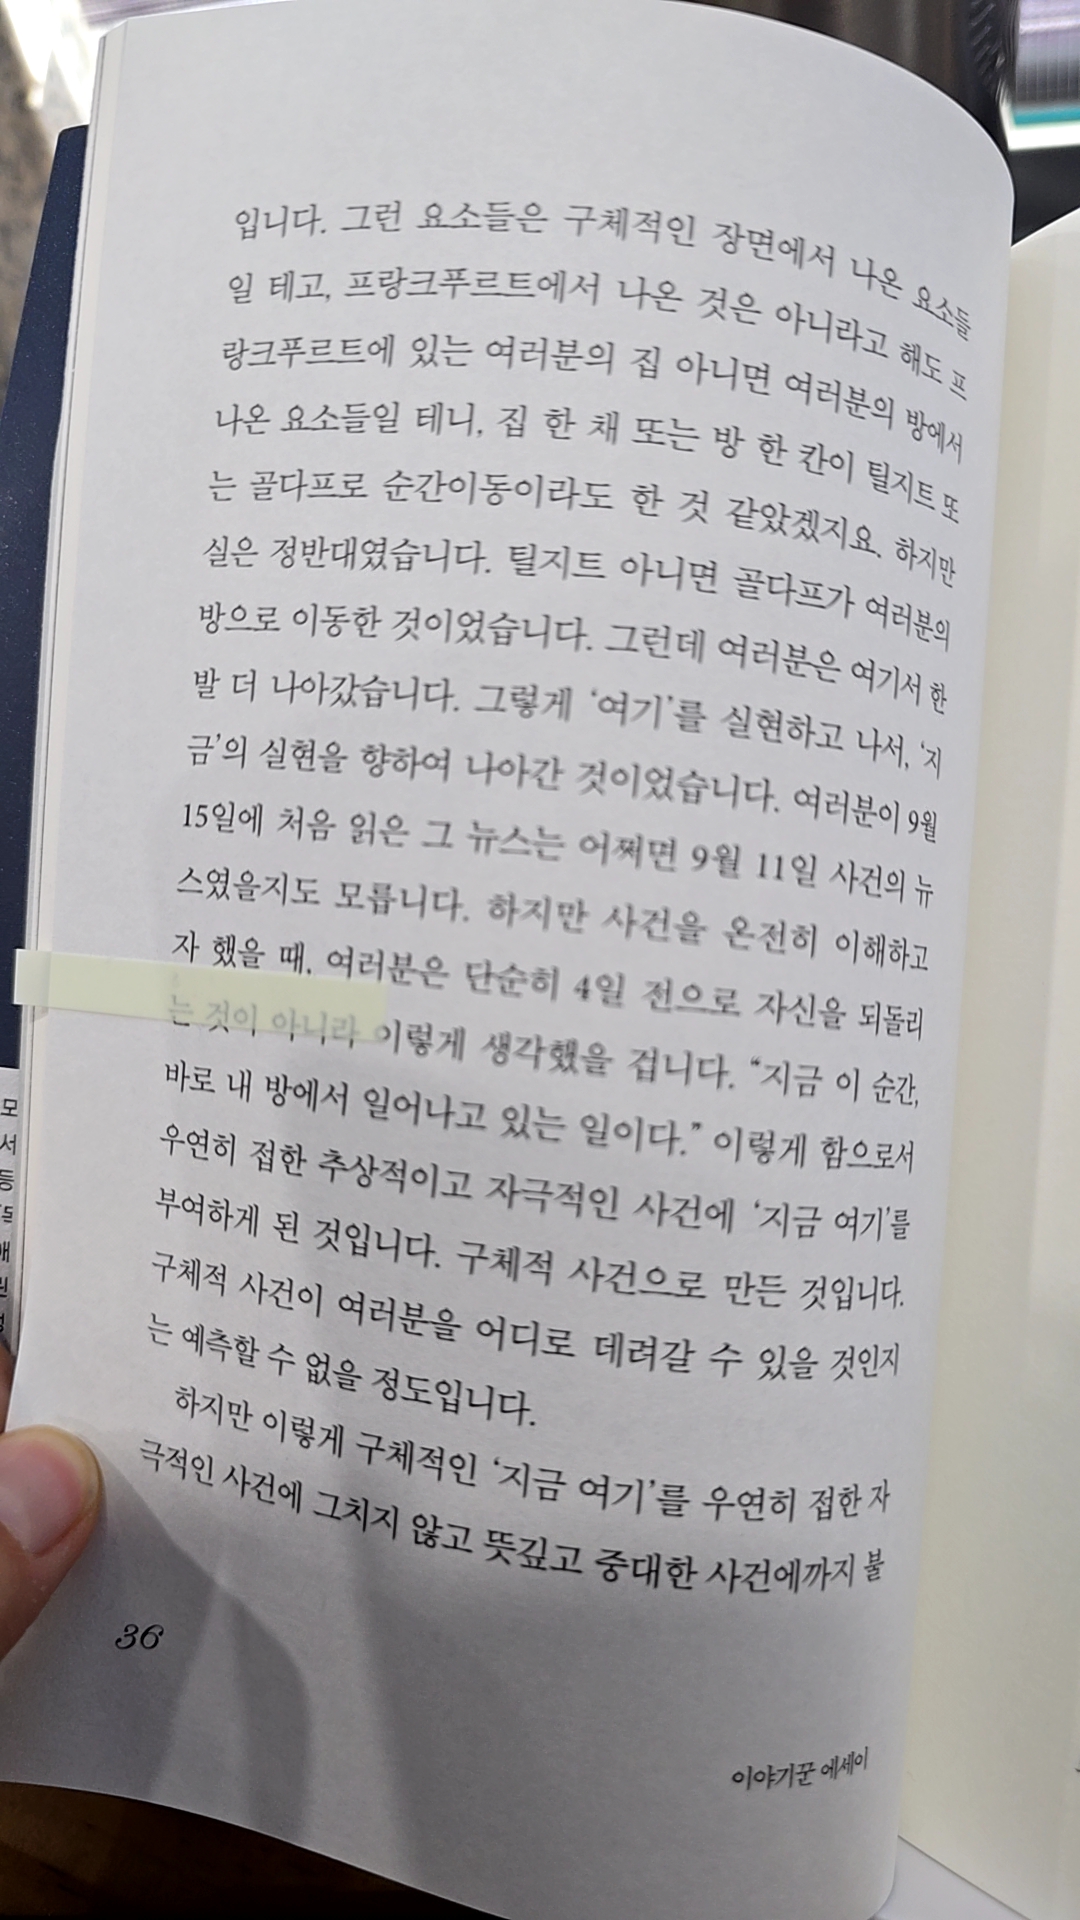 입니다. 그런 요소들은 구체적인 장면에서 나온 요소들
일 테고, 프랑크푸르트에서 나온 것은 아니라고 해도 프
랑크푸르트에 있는 여러분의 집 아니면 여러분의 방에서
나온 요소들일 테니, 집 한 채 또는 방 한 칸이 틸지트 또
는 골다프로 순간이동이라도 한 것 같았겠지요. 하지만
실은 정반대였습니다. 틸지트 아니면 골다프가 여러분의
방으로 이동한 것이었습니다. 그런데 여러분은 여기서 한
발 더 나아갔습니다. 그렇게 ‘여기’를 실현하고 나서, ‘지
금’의 실현을 향하여 나아간 것이었습니다. 여러분이 9월
15일에 처음 읽은 그 뉴스는 어쩌면 9월 11일 사건의 뉴
스였을지도 모릅니다. 하지만 사건을 온전히 이해하고
자 했을 때, 여러분은 단순히 4일 전으로 자신을 되돌리
는 것이 아니라 이렇게 생각했을 겁니다. “지금 이 순간,
바로 내 방에서 일어나고 있는 일이다.” 이렇게 함으로서
우연히 접한 추상적이고 자극적인 사건에 ‘지금 여기’를
부여하게 된 것입니다. 구체적 사건으로 만든 것입니다.
구체적 사건이 여러분을 어디로 데려갈 수 있을 것인지
는 예측할 수 없을 정도입니다.
하지만 이렇게 구체적인 ‘지금 여기’를 우연히 접한 자
극적인 사건에 그치지 않고 뜻깊고 중대한 사건에까지 불
36
이야기꾼 에세이
모
서
등